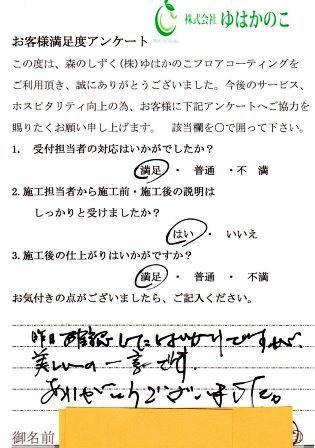 株式会社 ゆはかのこ
お客様満足度アンケート
この度は、森のしずく(株)ゆはかのこフロアコーティングを
ご利用頂き、誠にありがとうございました。今後のサービス、
ホスピタリティ向上の為、お客様に下記アンケートへご協力を
賜りたくお願い申し上げます。 該当欄を〇で囲って下さい。
1. 受付担当者の対応はいかがでしたか？
満足 ・ 普通 ・不 満
2.施工担当者から施工前・施工後の説明は
しっかりと受けましたか？
はい ・ いいえ
3.施工後の仕上がりはいかがですか？
満足 ・ 普通 ・ 不満
お気付きの点がございましたら、ご記入ください。
昨日確認したばかりですが、
美しいの一言です。
ありがとうございました。
御名前